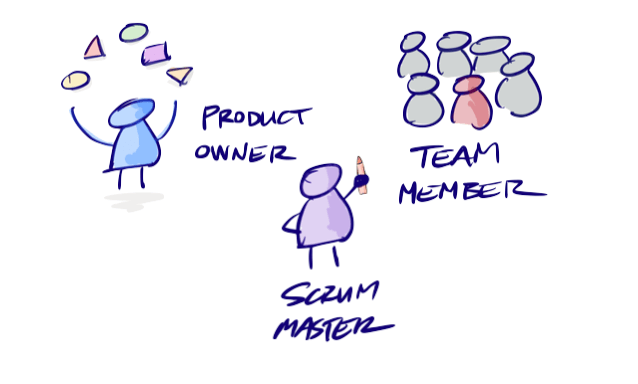 PRODUCT
OWNER
TEAM
MEMBER
SCRUM
MASTER